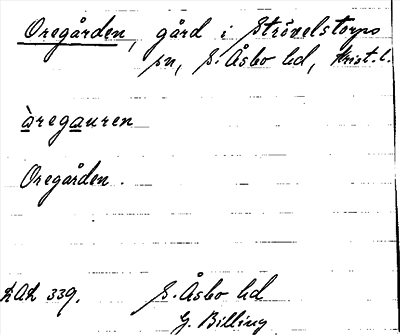 Oregården, gård i Strövelstorps
sn, S. Åsbo hd, Krist. l.
òregauren
Oregården.
LAL 339. S. Åsbo hd
G. Billing